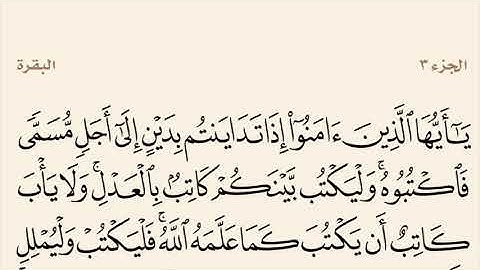 الجزء ٣
البقرة
يَـٰٓأَيُّهَا ٱلَّذِينَ ءَامَنُوٓا۟ إِذَا تَدَايَنتُم بِدَيْنٍ إِلَىٰٓ أَجَلٍ مُّسَمًّى
فَٱكْتُبُوهُ ۚ وَلْيَكْتُب بَّيْنَكُمْ كَاتِبٌۢ بِٱلْعَدْلِ ۚ وَلَا يَأْبَ
كَاتِبٌ أَن يَكْتُبَ كَمَا عَلَّمَهُ ٱللَّهُ ۚ فَلْيَكْتُبْ وَلْيُمْلِلِ